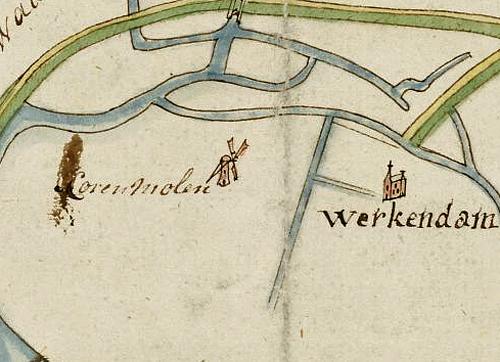 Wa
Coren Molen
Werkendam